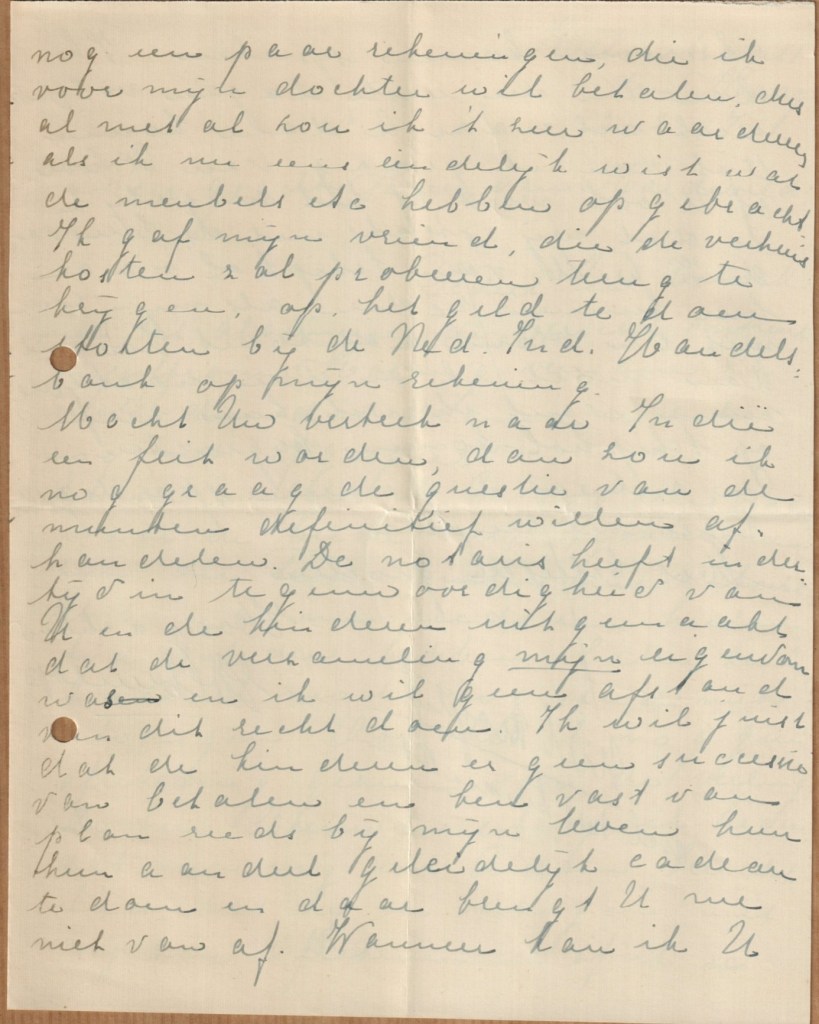 nog een paar rekeningen, die ik
voor mijn dochter wil betalen, dus
al met al zou ik 't zeer waardeeren
als ik nu eens eindelijk wist wat
de meubels etc hebben opgebracht
Ik gaf mijn vriend, die de verhuis
kosten zal probeeren terug te
krijgen, op, het geld te doen
storten bij de Ned. Ind. Handels-
bank op mijn rekening.
Mocht Uw vertrek naar Indië
een feit worden, dan zou ik
nog graag de questie van de
munten definitief willen af-
handelen. De notaris heeft inder-
tijd in tegenwoordigheid van
U en de kinderen uitgemaakt
dat de verzameling mijn eigendom
was en ik wil geen afstand
van dit recht doen. Ik wil juist
dat de kinderen er geen successie
van betalen en ben vast van
plan reeds bij mijn leven hun
hun aandeel geleidelijk cadeau
te doen en daar brengt U me
niet van af. Wanneer kan ik U